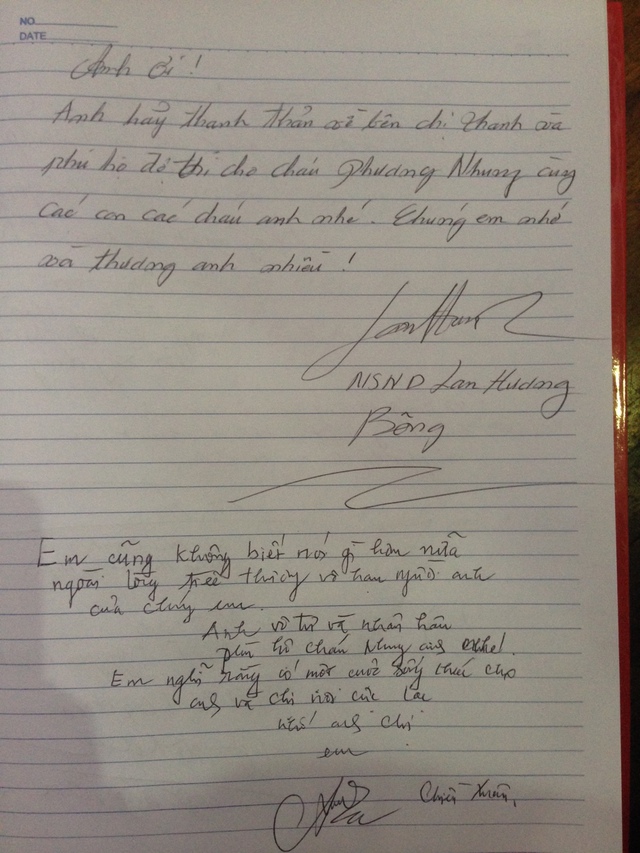 NO.
DATE
Anh ơi!
Anh hãy thanh thản về bên chị Thanh và
phù hộ độ trì cho cháu Phương Nhung cùng
các con các cháu anh nhé. Chúng em nhớ
và thương anh nhiều!
NSND Lan Hương
Bông
Em cũng không biết nói gì hơn nữa
ngoài lòng tiếc thương vô hạn người anh
của chúng em.
Anh vô tư và nhân hậu
phù hộ cháu Nhung anh nhé!
Em nghĩ rằng có một cuộc sống khác cho
anh và chị nơi cực lạc
nhớ anh chị
em
Chiều Xuân,